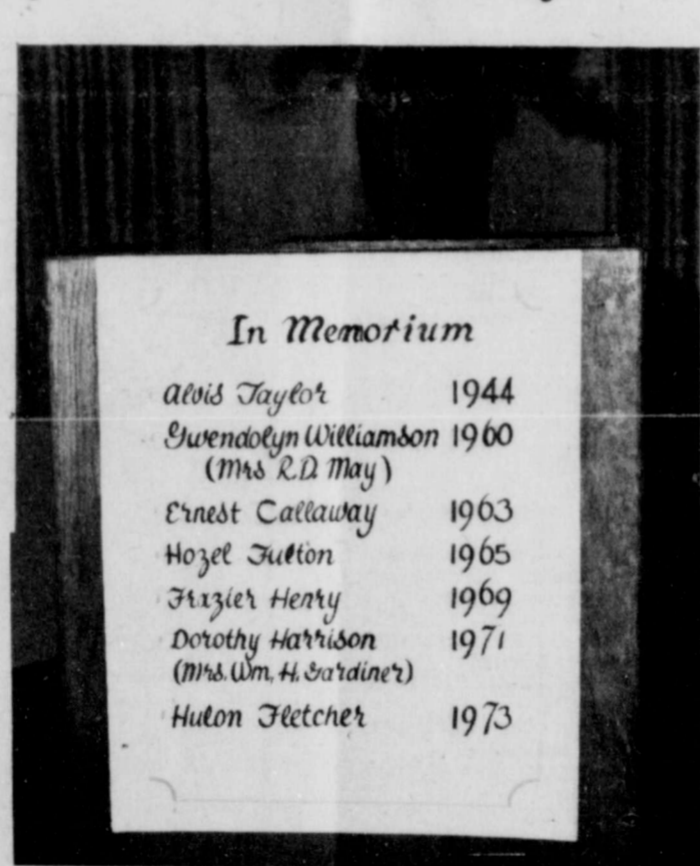 In Memorium
Alvis Taylor 1944
Gwendolyn Williamson 1960
(Mrs R.D. May)
Ernest Callaway 1963
Hozel Fulton 1965
Frazier Henry 1969
Dorothy Harrison 1971
(Mrs. Wm. H. Gardiner)
Hulon Fletcher 1973